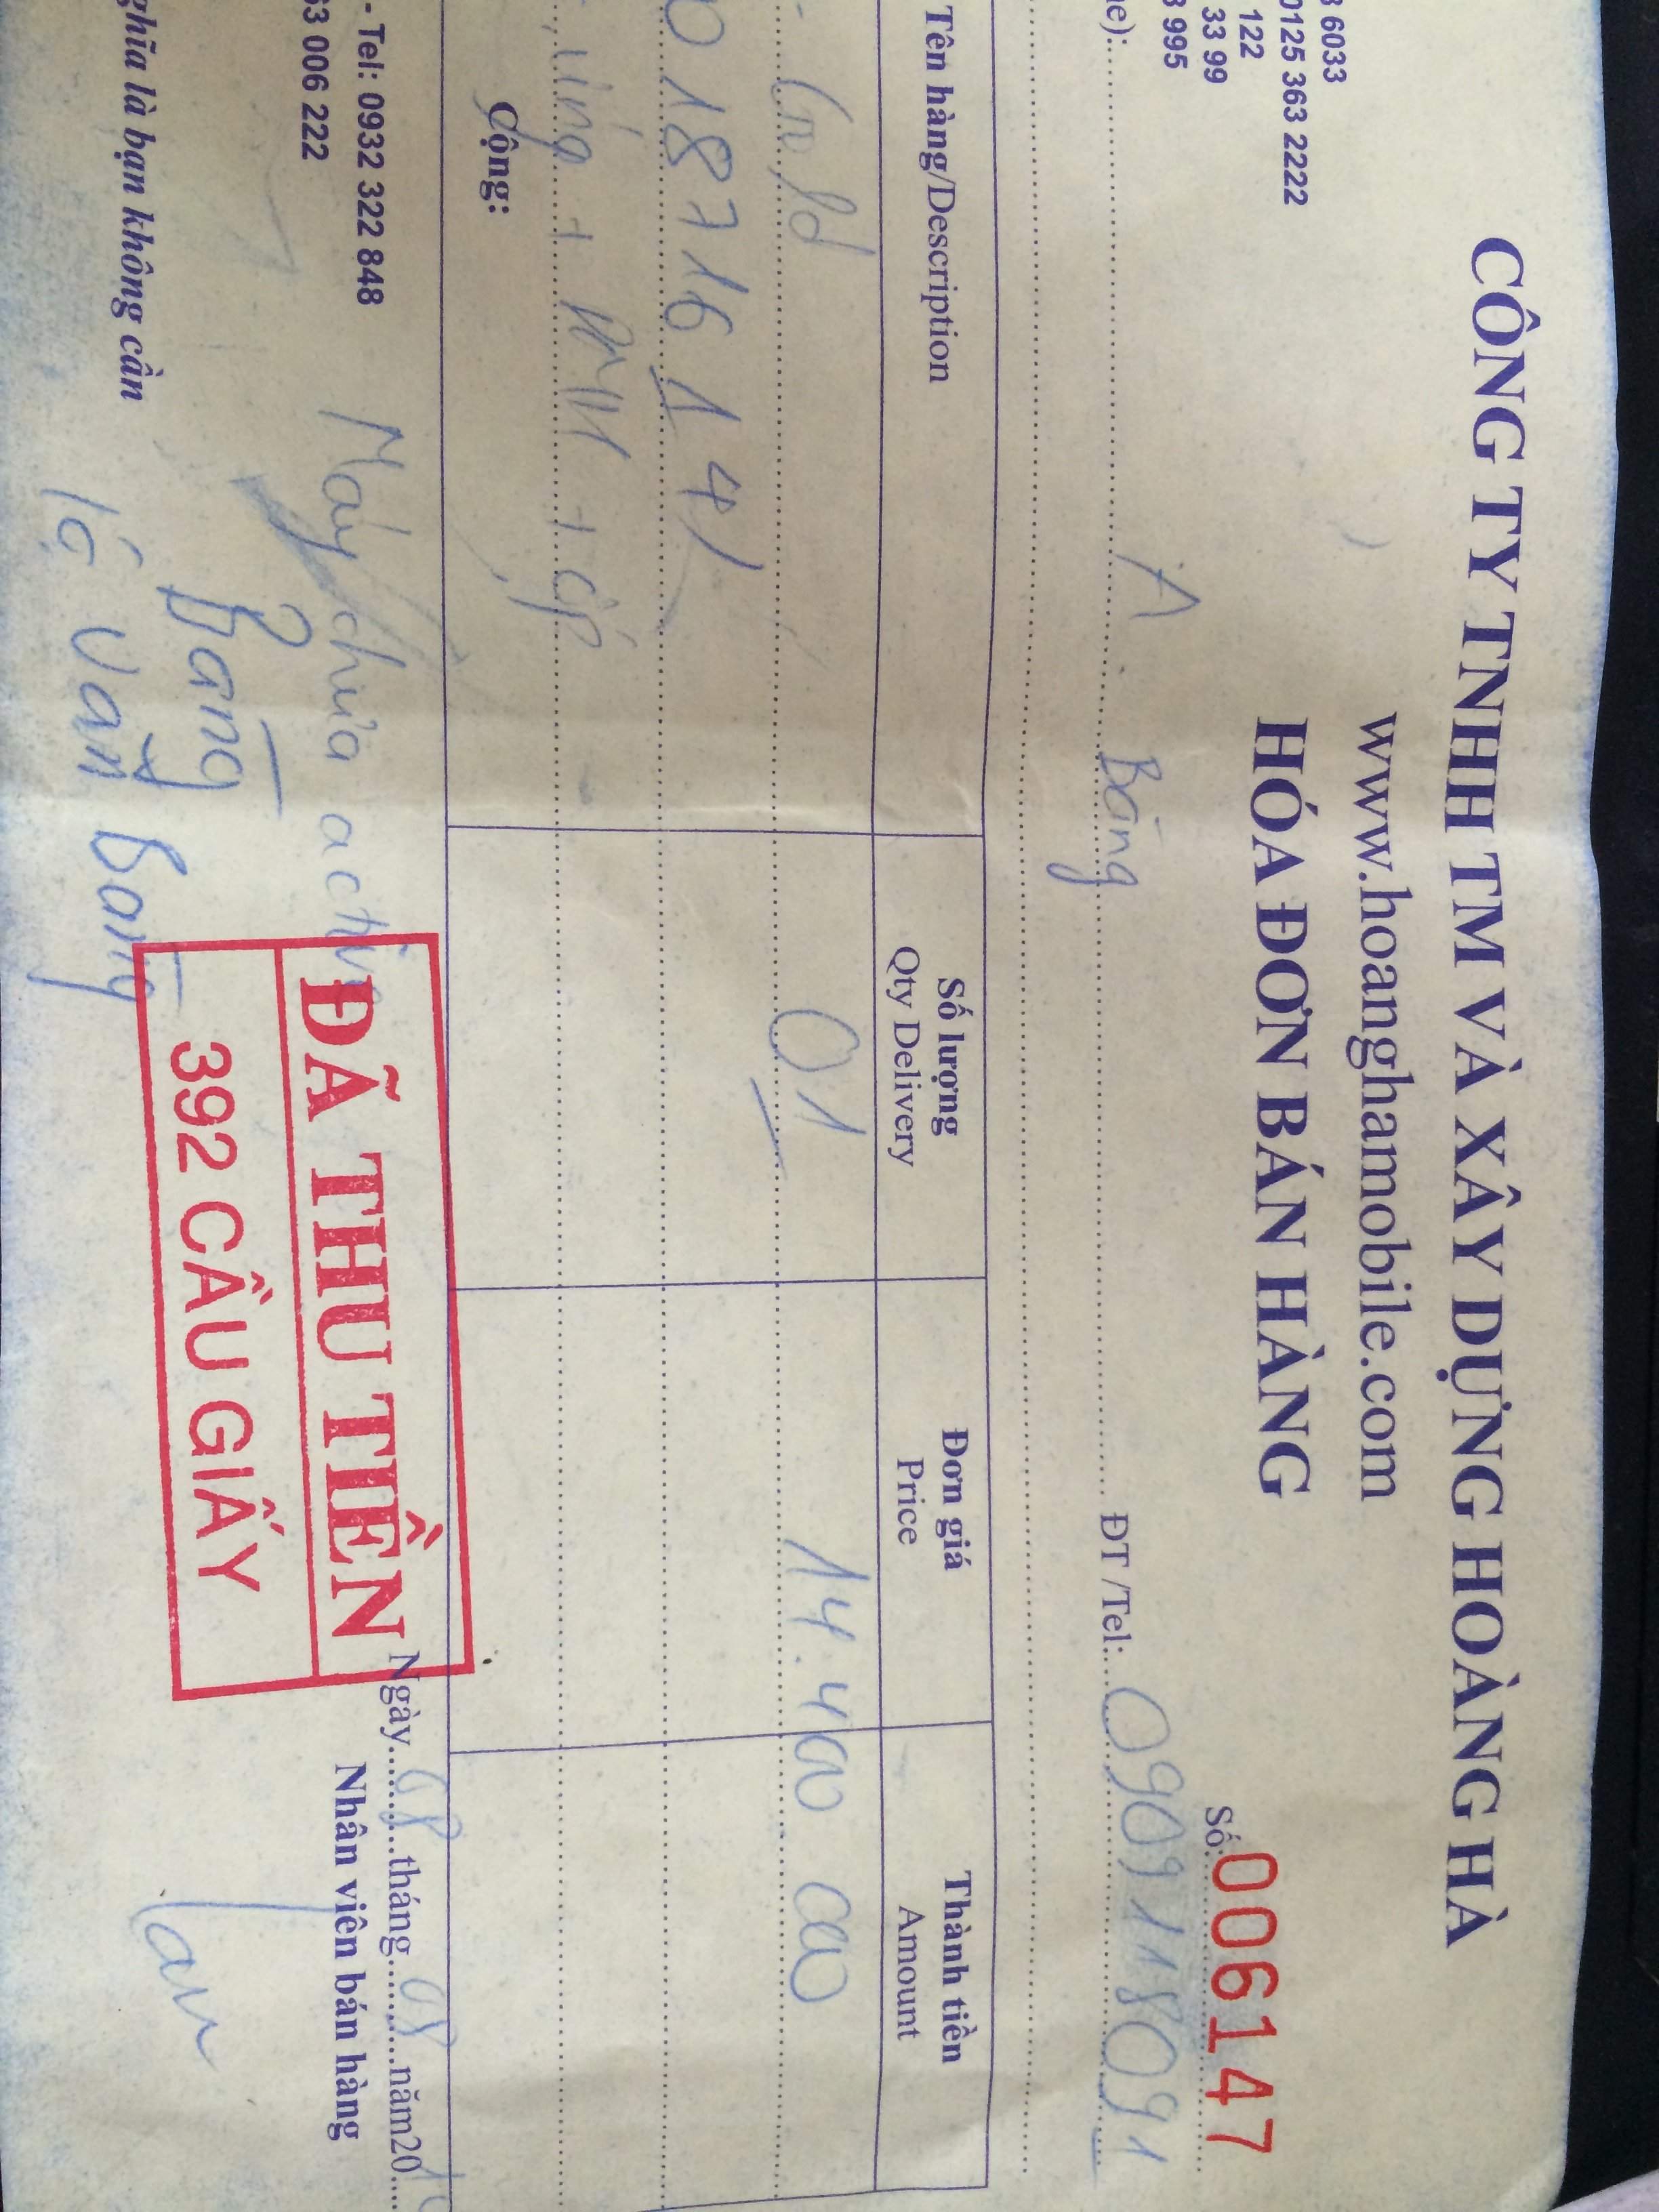 CÔNG TY TNHH TM VÀ XÂY DỰNG HOÀNG HÀ
www.hoanghamobile.com
HÓA ĐƠN BÁN HÀNG
6033
0125 363 2222
122
33 99
995
Số: 006147
A Bằng
ĐT /Tel: 0909118091
Tên hàng/Description
Số lượng
Qty Delivery
Đơn giá
Price
Thành tiền
Amount
Gold
01
14.400.000
018716141
+ cáp
Cộng:
- Tel: 0932 322 848
63 006 222
nghĩa là bạn không cần
Máy chưa active
Bằng
Lê Văn Bằng
ĐÃ THU TIỀN
392 CẦU GIẤY
Ngày 08 tháng 08 năm 20
Nhân viên bán hàng